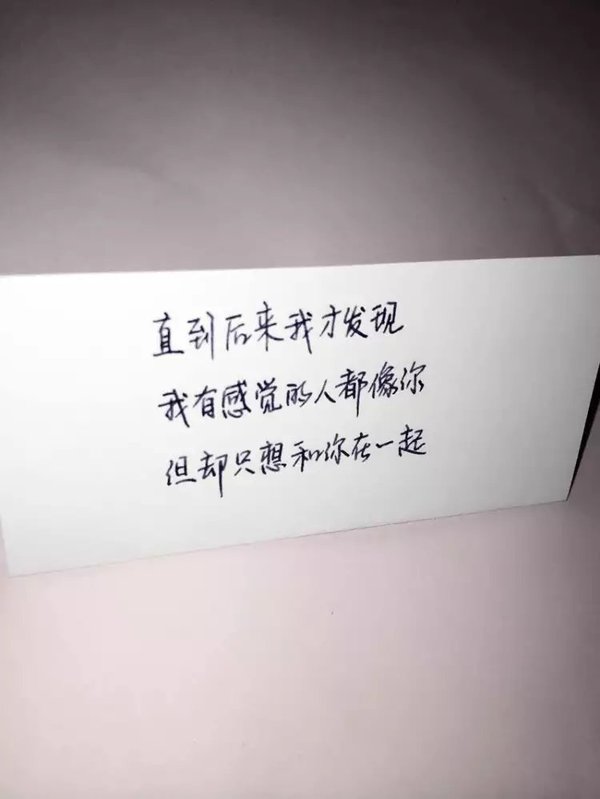 直到后来我才发现
我有感觉的人都像你
但却只想和你在一起